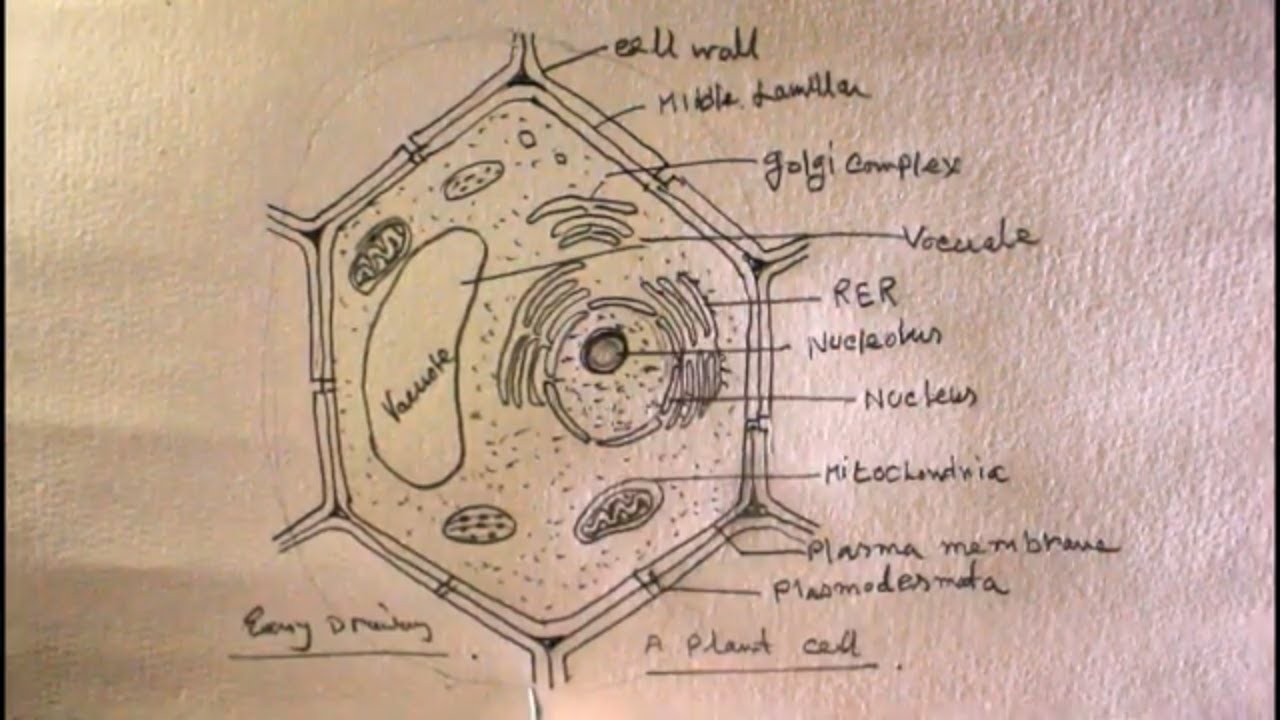 cell wall
Middle Lamillar
golgi complex
Vacuale
RER
Nucleolus
Vacuole
Nucleus
Mitochondria
Plasma membrane
Plasmodesmata
Easy Drawing
A Plant cell